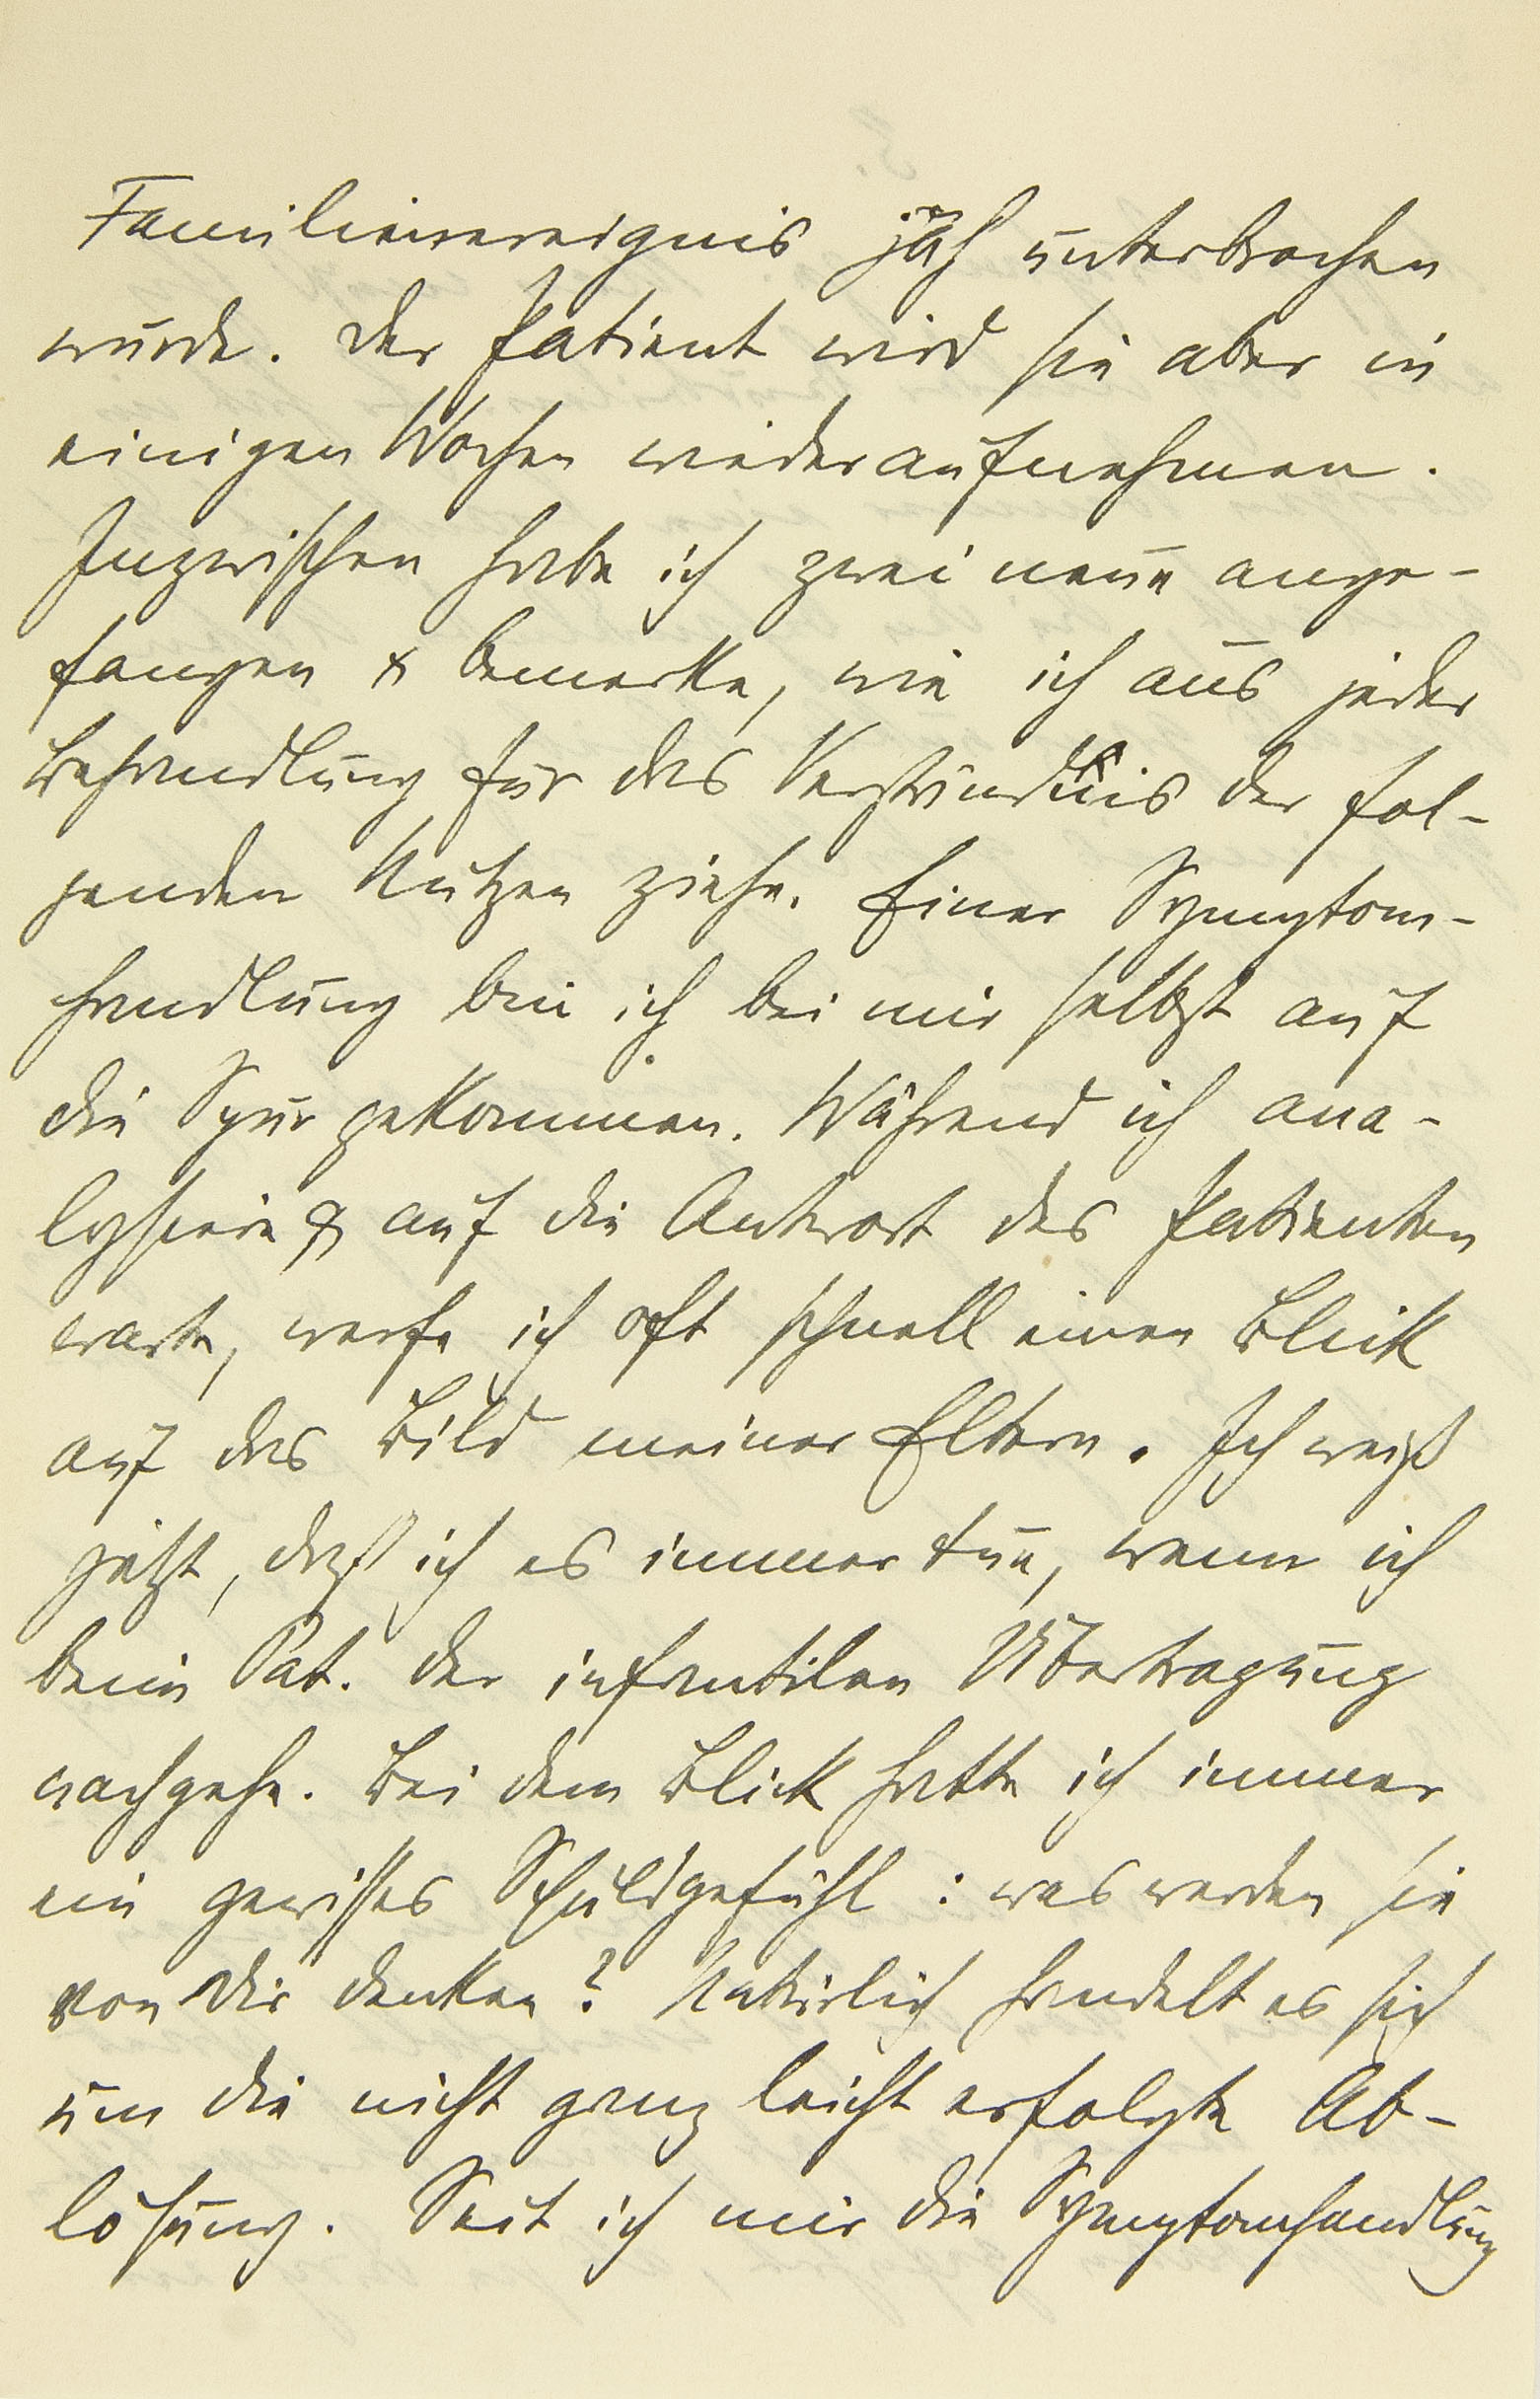 Familienereignis jäh unterbrochen
wurde. Der Patient wird sie aber in
einigen Wochen wiederaufnehmen.
Inzwischen habe ich zwei neue ange-
fangen & bemerke, wie ich aus jeder
Behandlung für das Verständnis der fol-
genden Nutzen ziehe. Einer Symptom-
handlung bin ich bei mir selbst auf
die Spur gekommen. Während ich ana-
lysiere & auf die Antwort des Patienten
warte, werfe ich oft schnell einen Blick
auf das Bild meiner Eltern. Ich weiß
jetzt, daß ich es immer tue, wenn ich
beim Pat. der infantilen Übertragung
nachgehe. Bei dem Blick hatte ich immer
ein gewisses Schuldgefühl: was werden sie
von Dir denken? Natürlich handelt es sich
um die nicht ganz leicht erfolgte Ab-
lösung. Seit ich mir die Symptomhandlung